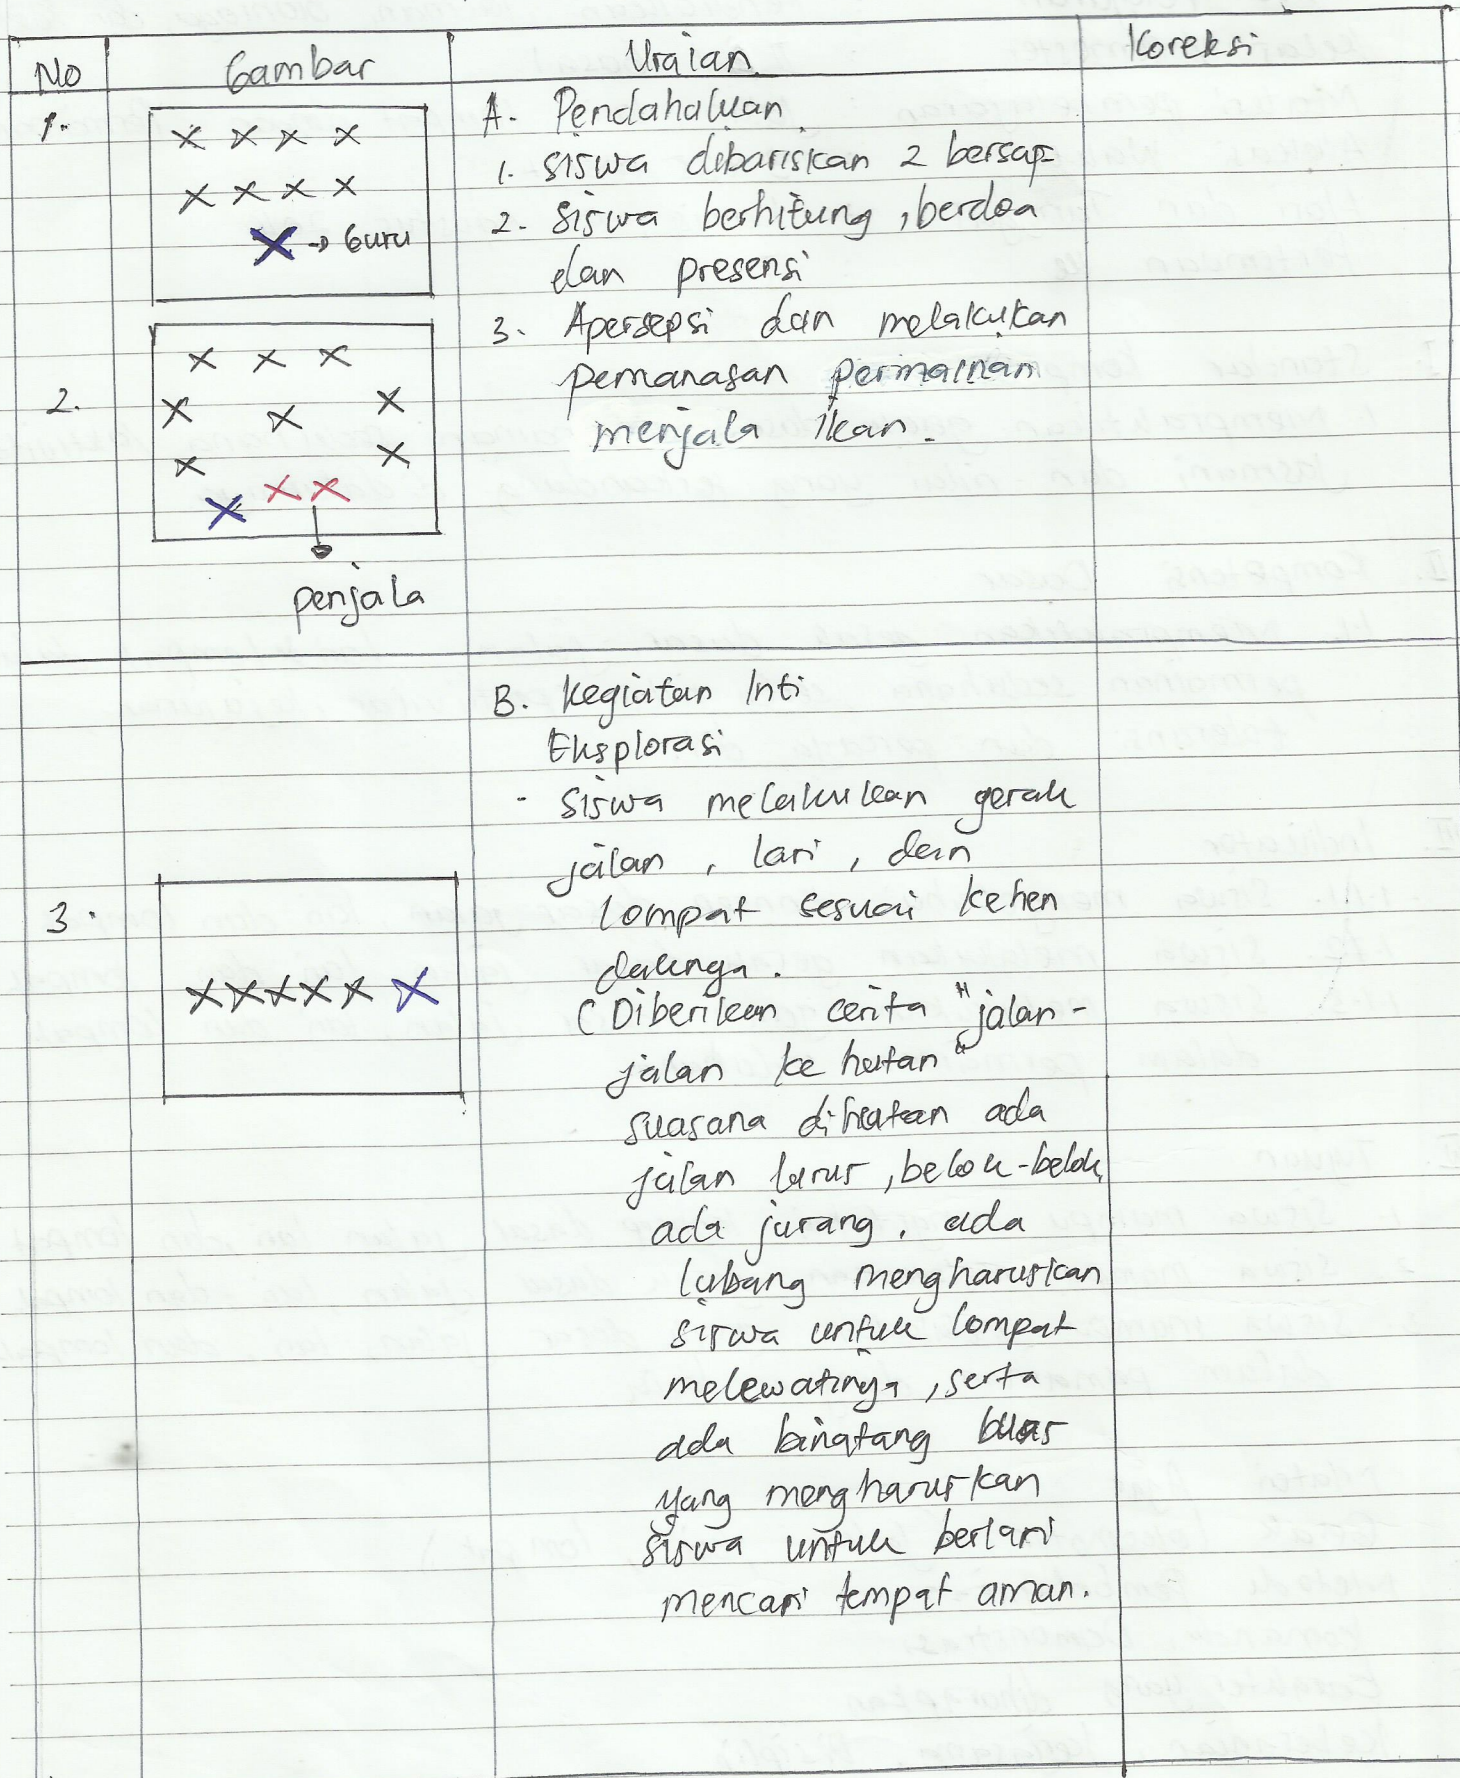 No Gambar Uraian Koreksi
1.
→ Guru
A. Pendahaluan
1. siswa dibariskan 2 bersap
2. siswa berhitung, berdoa
dan presensi
3. Apersepsi dan melakukan
pemanasan permainan
menjala ikan.
2.
penjala
B. Kegiatan Inti
Eksplorasi
- siswa melakukan gerak
jalan, lari, dan
lompat sesuai kehen
daknya.
3.
(Diberikan cerita "jalan-
jalan ke hutan"
suasana dihutan ada
jalan lurus, belok-belok,
ada jurang, ada
lubang mengharuskan
siswa untuk lompat
melewatinya, serta
ada binatang buas
yang mengharuskan
siswa untuk berlari
mencari tempat aman.